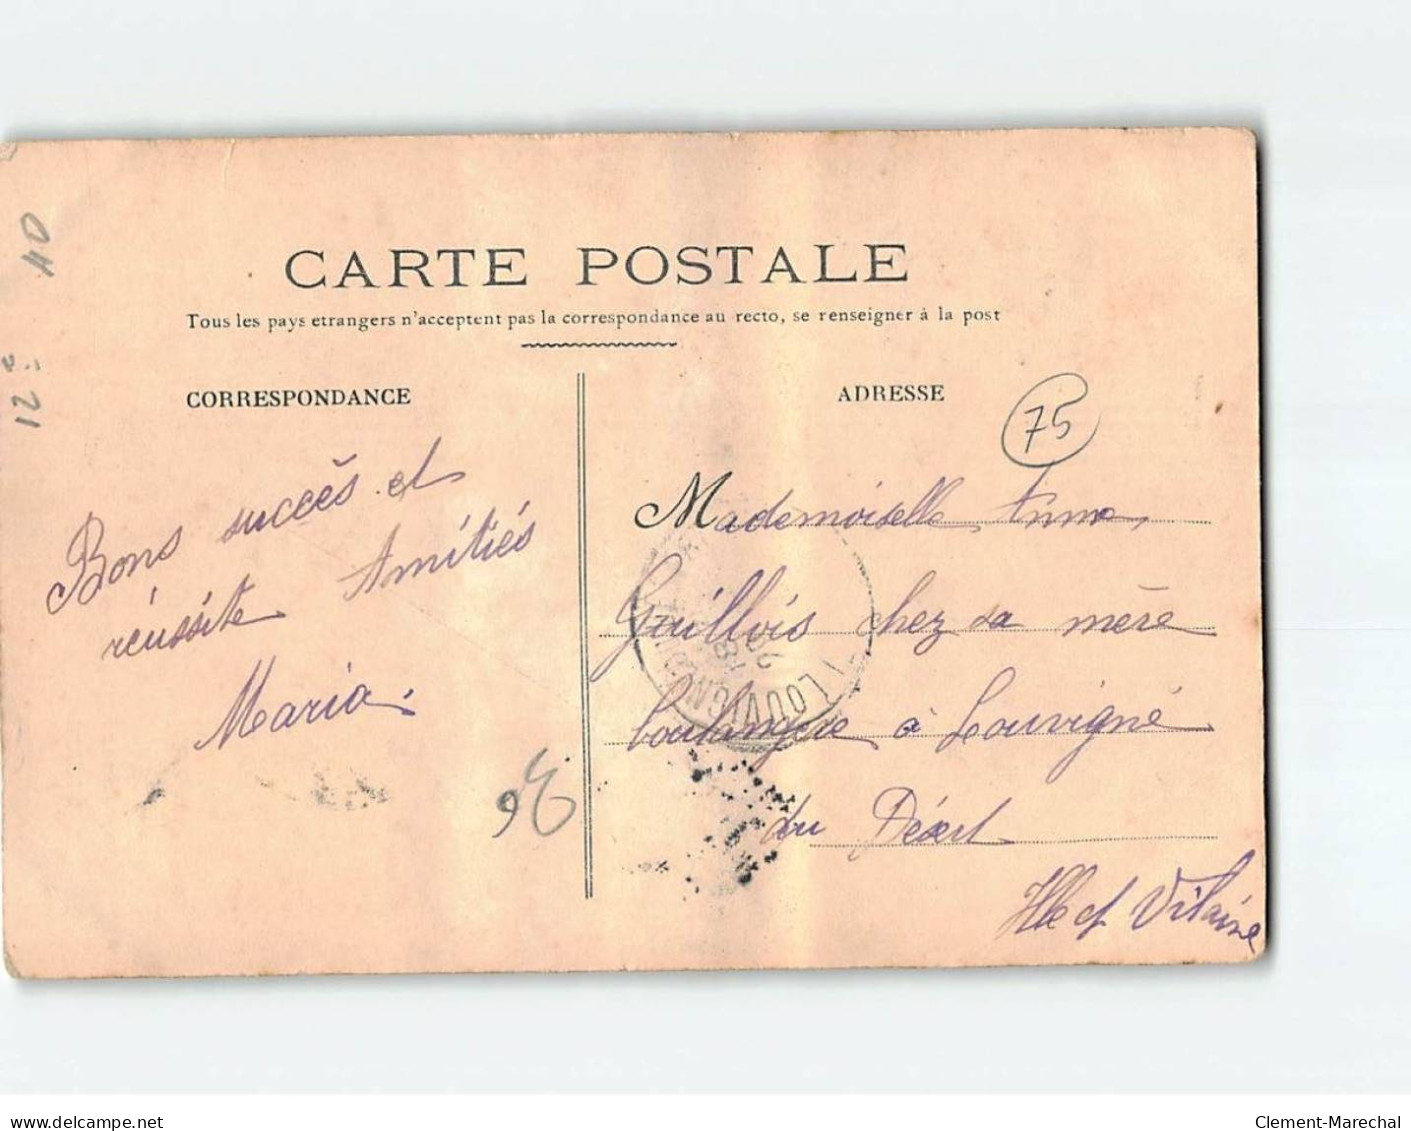 CARTE POSTALE
Tous les pays etrangers n'acceptent pas la correspondance au recto, se renseigner à la post
CORRESPONDANCE
ADRESSE
75
40
12
Bons succès et
réussite Amitiés
Maria.
36
Mademoiselle Anna
Guillois chez sa mère
boulangère à Louvigné
du Désert
Ille et Vilaine
LOUVIGNÉ
delcampe.net
Clement-Marechal